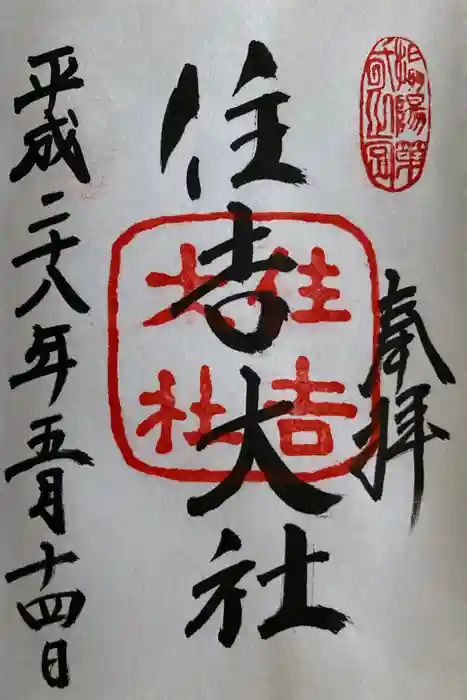 奉拝
住吉大社
住吉
大社
平成二十八年五月十四日